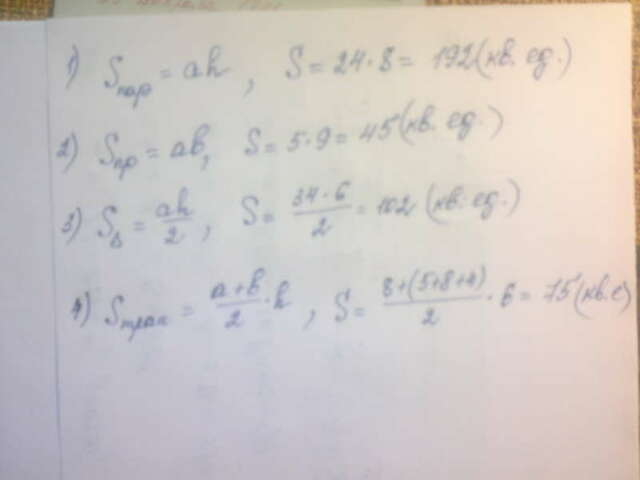 1) Sпар = ah, S = 24 · 8 = 192 (кв. ед.)
2) Sпр = ab, S = 5 · 9 = 45 (кв. ед.)
3) S∆ = ah/2, S = 34 · 6/2 = 102 (кв. ед.)
4) Sтрап = a+b/2 · h, S = 8+(5+8+4)/2 · 6 = 75 (кв. е)